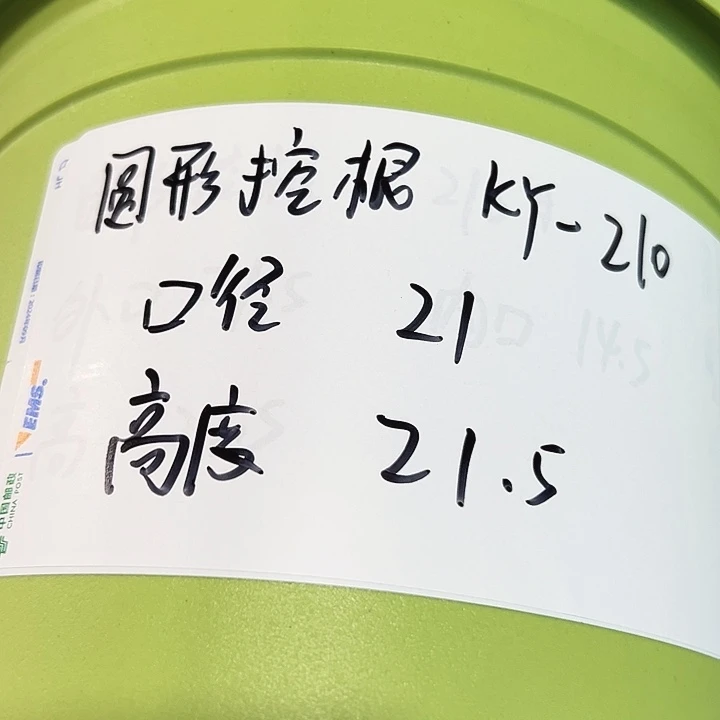 圆形控根 KY-210
口径 21
高度 21.5
EMS
中国邮政
CHINA POST